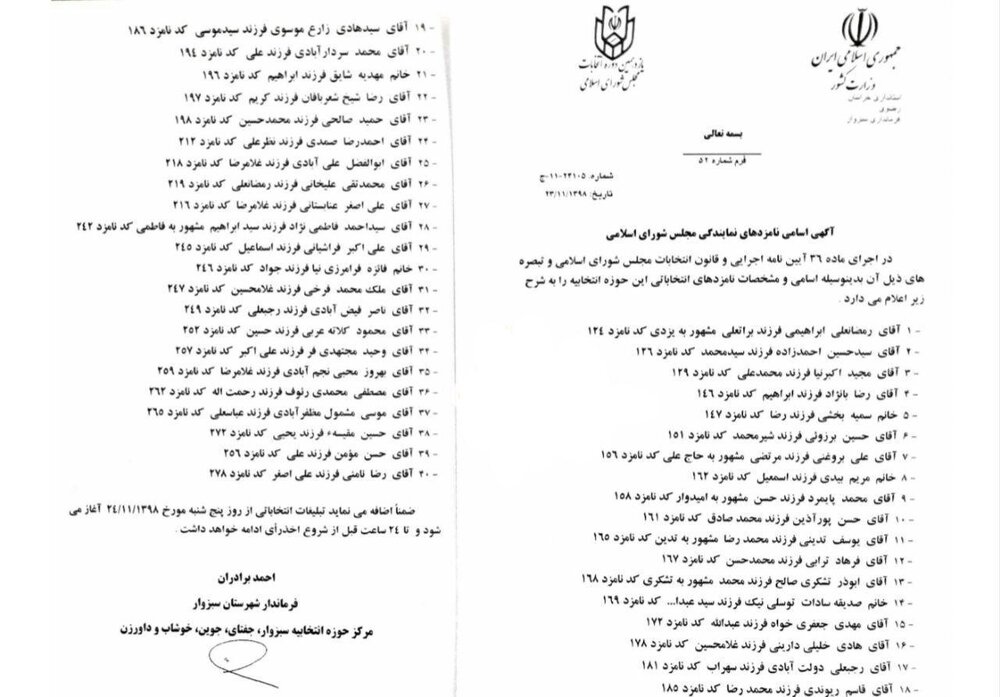 جمهوری اسلامی ایران
وزارت کشور
استانداری خراسان
رضوی
فرمانداری سبزوار
یازدهمین دوره انتخابات
مجلس شورای اسلامی
بسمه تعالی
فرم شماره ۵۲
شماره: ۲۳۱۰۵-۱۱-ج
تاریخ: ۲۳/۱۱/۱۳۹۸
آگهی اسامی نامزدهای نمایندگی مجلس شورای اسلامی
در اجرای ماده ۳۶ آیین نامه اجرایی و قانون انتخابات مجلس شورای اسلامی و تبصره
های ذیل آن بدینوسیله اسامی و مشخصات نامزدهای انتخاباتی این حوزه انتخابیه را به شرح
زیر اعلام می دارد .
۱ - آقای رمضانعلی ابراهیمی فرزند براتعلی مشهور به یزدی کد نامزد ۱۲۴
۲ - آقای سیدحسین احمدزاده فرزند سیدمحمد کد نامزد ۱۲۶
۳ - آقای مجید اکبرنیا فرزند محمدعلی کد نامزد ۱۲۹
۴ - آقای رضا بانژاد فرزند ابراهیم کد نامزد ۱۴۶
۵ - خانم سمیه بخشی فرزند رضا کد نامزد ۱۴۷
۶ - آقای حسین برزوئی فرزند شیرمحمد کد نامزد ۱۵۱
۷ - آقای علی بروغنی فرزند مرتضی مشهور به حاج علی کد نامزد ۱۵۶
۸ - خانم مریم بیدی فرزند اسمعیل کد نامزد ۱۶۲
۹ - آقای محمد پایمرد فرزند حسن مشهور به امیدوار کد نامزد ۱۵۸
۱۰ - آقای حسن پورآذین فرزند محمد صادق کد نامزد ۱۶۱
۱۱ - آقای یوسف تدینی فرزند محمد رضا مشهور به تدین کد نامزد ۱۶۵
۱۲ - آقای فرهاد ترابی فرزند محمدحسن کد نامزد ۱۶۷
۱۳ - آقای ابوذر تشکری صالح فرزند محمد مشهور به تشکری کد نامزد ۱۶۸
۱۴ - خانم صدیقه سادات توسلی نیک فرزند سید عبدا... کد نامزد ۱۶۹
۱۵ - آقای مهدی جعفری خواه فرزند عبدالله کد نامزد ۱۷۲
۱۶ - آقای هادی خلیلی دارینی فرزند غلامحسین کد نامزد ۱۷۸
۱۷ - آقای رجبعلی دولت آبادی فرزند سهراب کد نامزد ۱۸۱
۱۸ - آقای قاسم ریوندی فرزند محمد رضا کد نامزد ۱۸۵
۱۹ - آقای سیدهادی زارع موسوی فرزند سیدموسی کد نامزد ۱۸۶
۲۰ - آقای محمد سردارآبادی فرزند علی کد نامزد ۱۹۴
۲۱ - خانم مهدیه شایق فرزند ابراهیم کد نامزد ۱۹۶
۲۲ - آقای رضا شیخ شعربافان فرزند کریم کد نامزد ۱۹۷
۲۳ - آقای حمید صالحی فرزند محمدحسین کد نامزد ۱۹۸
۲۴ - آقای احمدرضا صمدی فرزند نظرعلی کد نامزد ۲۱۲
۲۵ - آقای ابوالفضل علی آبادی فرزند غلامرضا کد نامزد ۲۱۸
۲۶ - آقای محمدتقی علیخانی فرزند رمضانعلی کد نامزد ۲۱۹
۲۷ - آقای علی اصغر عنابستانی فرزند غلامرضا کد نامزد ۲۱۶
۲۸ - آقای سیداحمد فاطمی نژاد فرزند سید ابراهیم مشهور به فاطمی کد نامزد ۲۴۲
۲۹ - آقای علی اکبر فراشیانی فرزند اسماعیل کد نامزد ۲۴۵
۳۰ - خانم فائزه فرامرزی نیا فرزند جواد کد نامزد ۲۴۶
۳۱ - آقای ملک محمد فرخی فرزند غلامحسین کد نامزد ۲۴۷
۳۲ - آقای ناصر فیض آبادی فرزند رجبعلی کد نامزد ۲۴۹
۳۳ - آقای محمود کلاته عربی فرزند حسین کد نامزد ۲۵۲
۳۴ - آقای وحید مجتهدی فر فرزند علی اکبر کد نامزد ۲۵۷
۳۵ - آقای بهروز محبی نجم آبادی فرزند غلامرضا کد نامزد ۲۵۹
۳۶ - آقای مصطفی محمدی رئوف فرزند رحمت اله کد نامزد ۲۶۲
۳۷ - آقای موسی مشمول مظفرآبادی فرزند عباسعلی کد نامزد ۲۶۵
۳۸ - آقای حسین مقیسهء فرزند یحیی کد نامزد ۲۷۲
۳۹ - آقای حسن مؤمن فرزند علی کد نامزد ۲۵۶
۴۰ - آقای رضا نامنی فرزند علی اصغر کد نامزد ۲۷۸
ضمناً اضافه می نماید تبلیغات انتخاباتی از روز پنج شنبه مورخ ۲۴/۱۱/۱۳۹۸ آغاز می
شود و تا ۲۴ ساعت قبل از شروع اخذرأی ادامه خواهد داشت .
احمد برادران
فرماندار شهرستان سبزوار
مرکز حوزه انتخابیه سبزوار، جغتای، جوین، خوشاب و داورزن